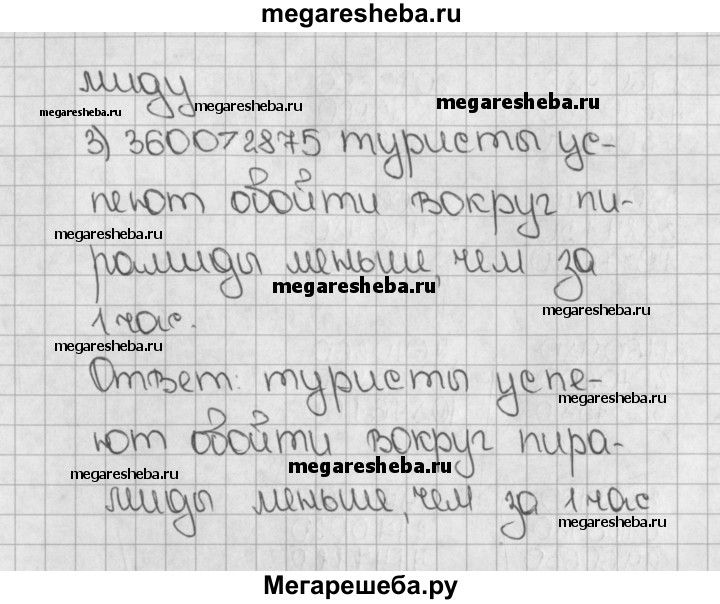 megaresheba.ru
миду
megaresheba.ru megaresheba.ru megaresheba.ru
3) 3600>2875 туристы ус-
пеют обойти вокруг пи-
megaresheba.ru
рамиды меньше, чем за
megaresheba.ru megaresheba.ru
1 час.
megaresheba.ru
Ответ: туристы успе-
megaresheba.ru
ют обойти вокруг пира-
megaresheba.ru megaresheba.ru
миды меньше, чем за 1 час
megaresheba.ru
Мегарешеба.ру